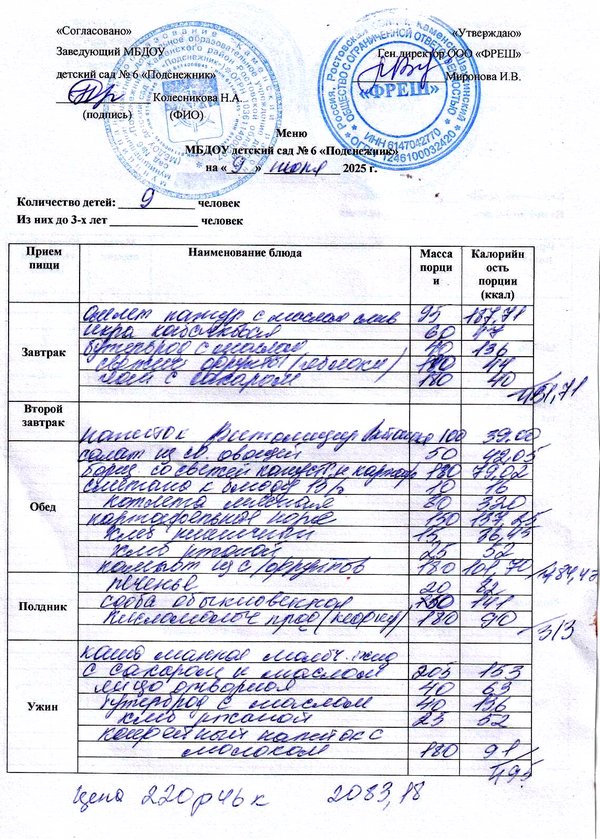 «Согласовано» «Утверждаю»
Заведующий МБДОУ Ген.директор ООО «ФРЕШ»
детский сад № 6 «Подснежник» Миронова И.В.
Колесникова Н.А.
(подпись) (ФИО)
«ФРЕШ»
ОБЩЕСТВО С ОГРАНИЧЕННОЙ ОТВЕТСТВЕННОСТЬЮ
ИНН 6147042770
ОГРН 1246100032420
Меню
МБДОУ детский сад № 6 «Подснежник»
на « 9 » июня 2025 г.
Количество детей: 9 человек
Из них до 3-х лет человек
Прием пищи Наименование блюда Масса порции Калорийность порции (ккал)
Завтрак
омлет натур с маслом слив 95 187,71
икра кабачковая 60 47
бутерброд с маслом 40 136
свежие фрукты (яблоки) 100 44
чай с сахаром 180 40
451,71
Второй завтрак
напиток Витошка 100 39,00
Обед
салат из св. овощей 50
борщ со свежей капустой и картоф 180 79,02
сметана к блюду 10 16
котлета мясная 80 320
картофельное пюре 130
хлеб пшеничный 15 36,45
хлеб ржаной 25 52
компот из с/фруктов 180 101,70
Полдник
печенье 20 82
сдоба обыкновенная 50 141
кисломолоч прод (кефир) 180 90
313
Ужин
каша манная молоч. жид
с сахаром и маслом 205 153
яйцо отварное 40 63
бутерброд с маслом 40 136
хлеб ржаной 25 52
кофейный напиток с
молоком 180 91
495
Цена 220р 46к 2083,18